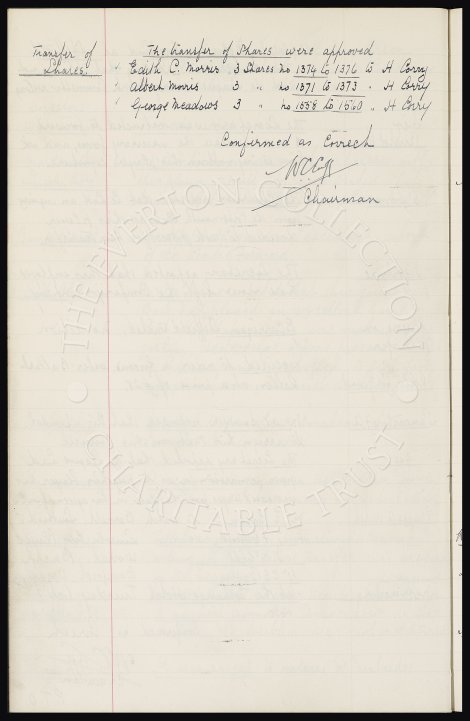 Transfer of Shares.
The transfer of Shares were approved
Edith C. Morris 3 Shares No 1374 to 1376 to H Corry
Albert Morris 3 " no 1371 to 1373 " H Corry
George Meadows 3 " no 1558 to 1560 " H Corry
Confirmed as Correct
Chairman
THE EVERTON COLLECTION
CHARITABLE TRUST